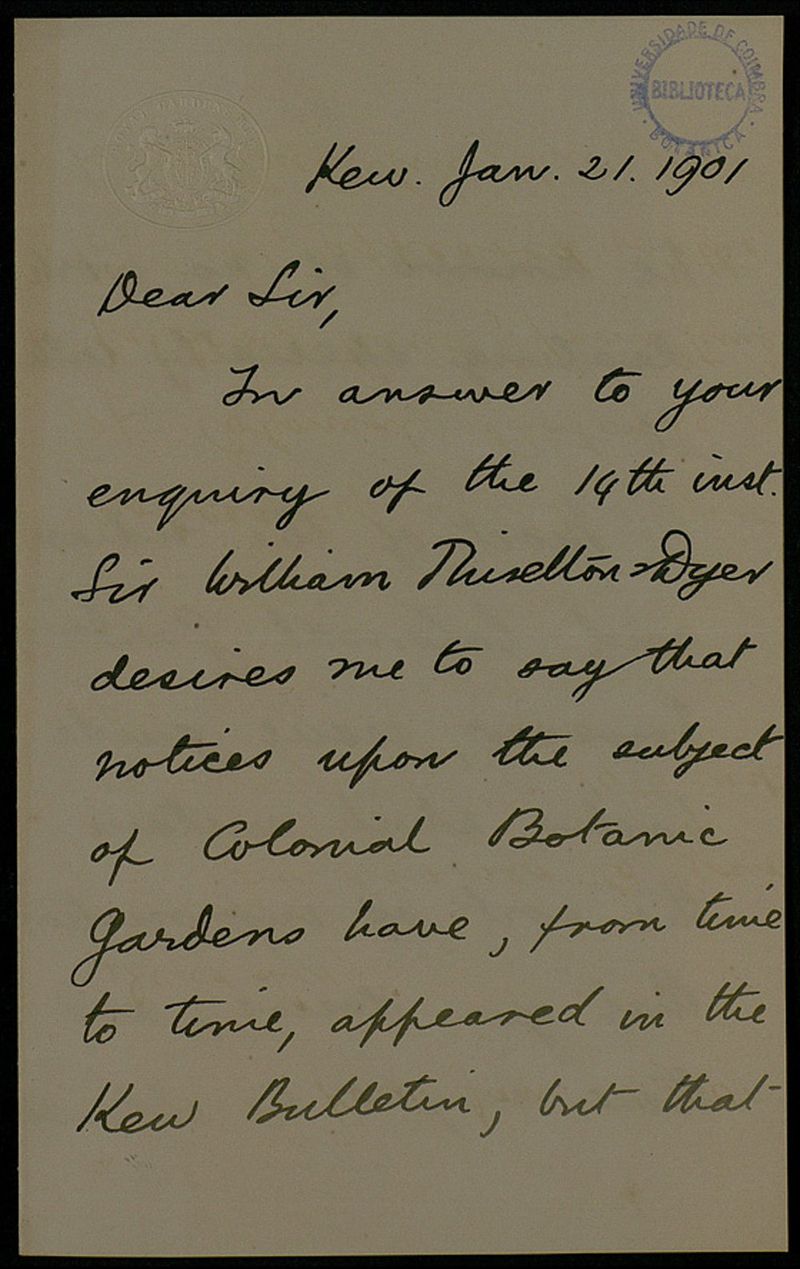 UNIVERSIDADE DE COIMBRA
BIBLIOTECA
BOTANICA
Kew. Jan. 21. 1901
Dear Sir,
In answer to your
enquiry of the 14th inst.
Sir William Thiselton-Dyer
desires me to say that
notices upon the subject
of Colonial Botanic
Gardens have, from time
to time, appeared in the
Kew Bulletin, but that